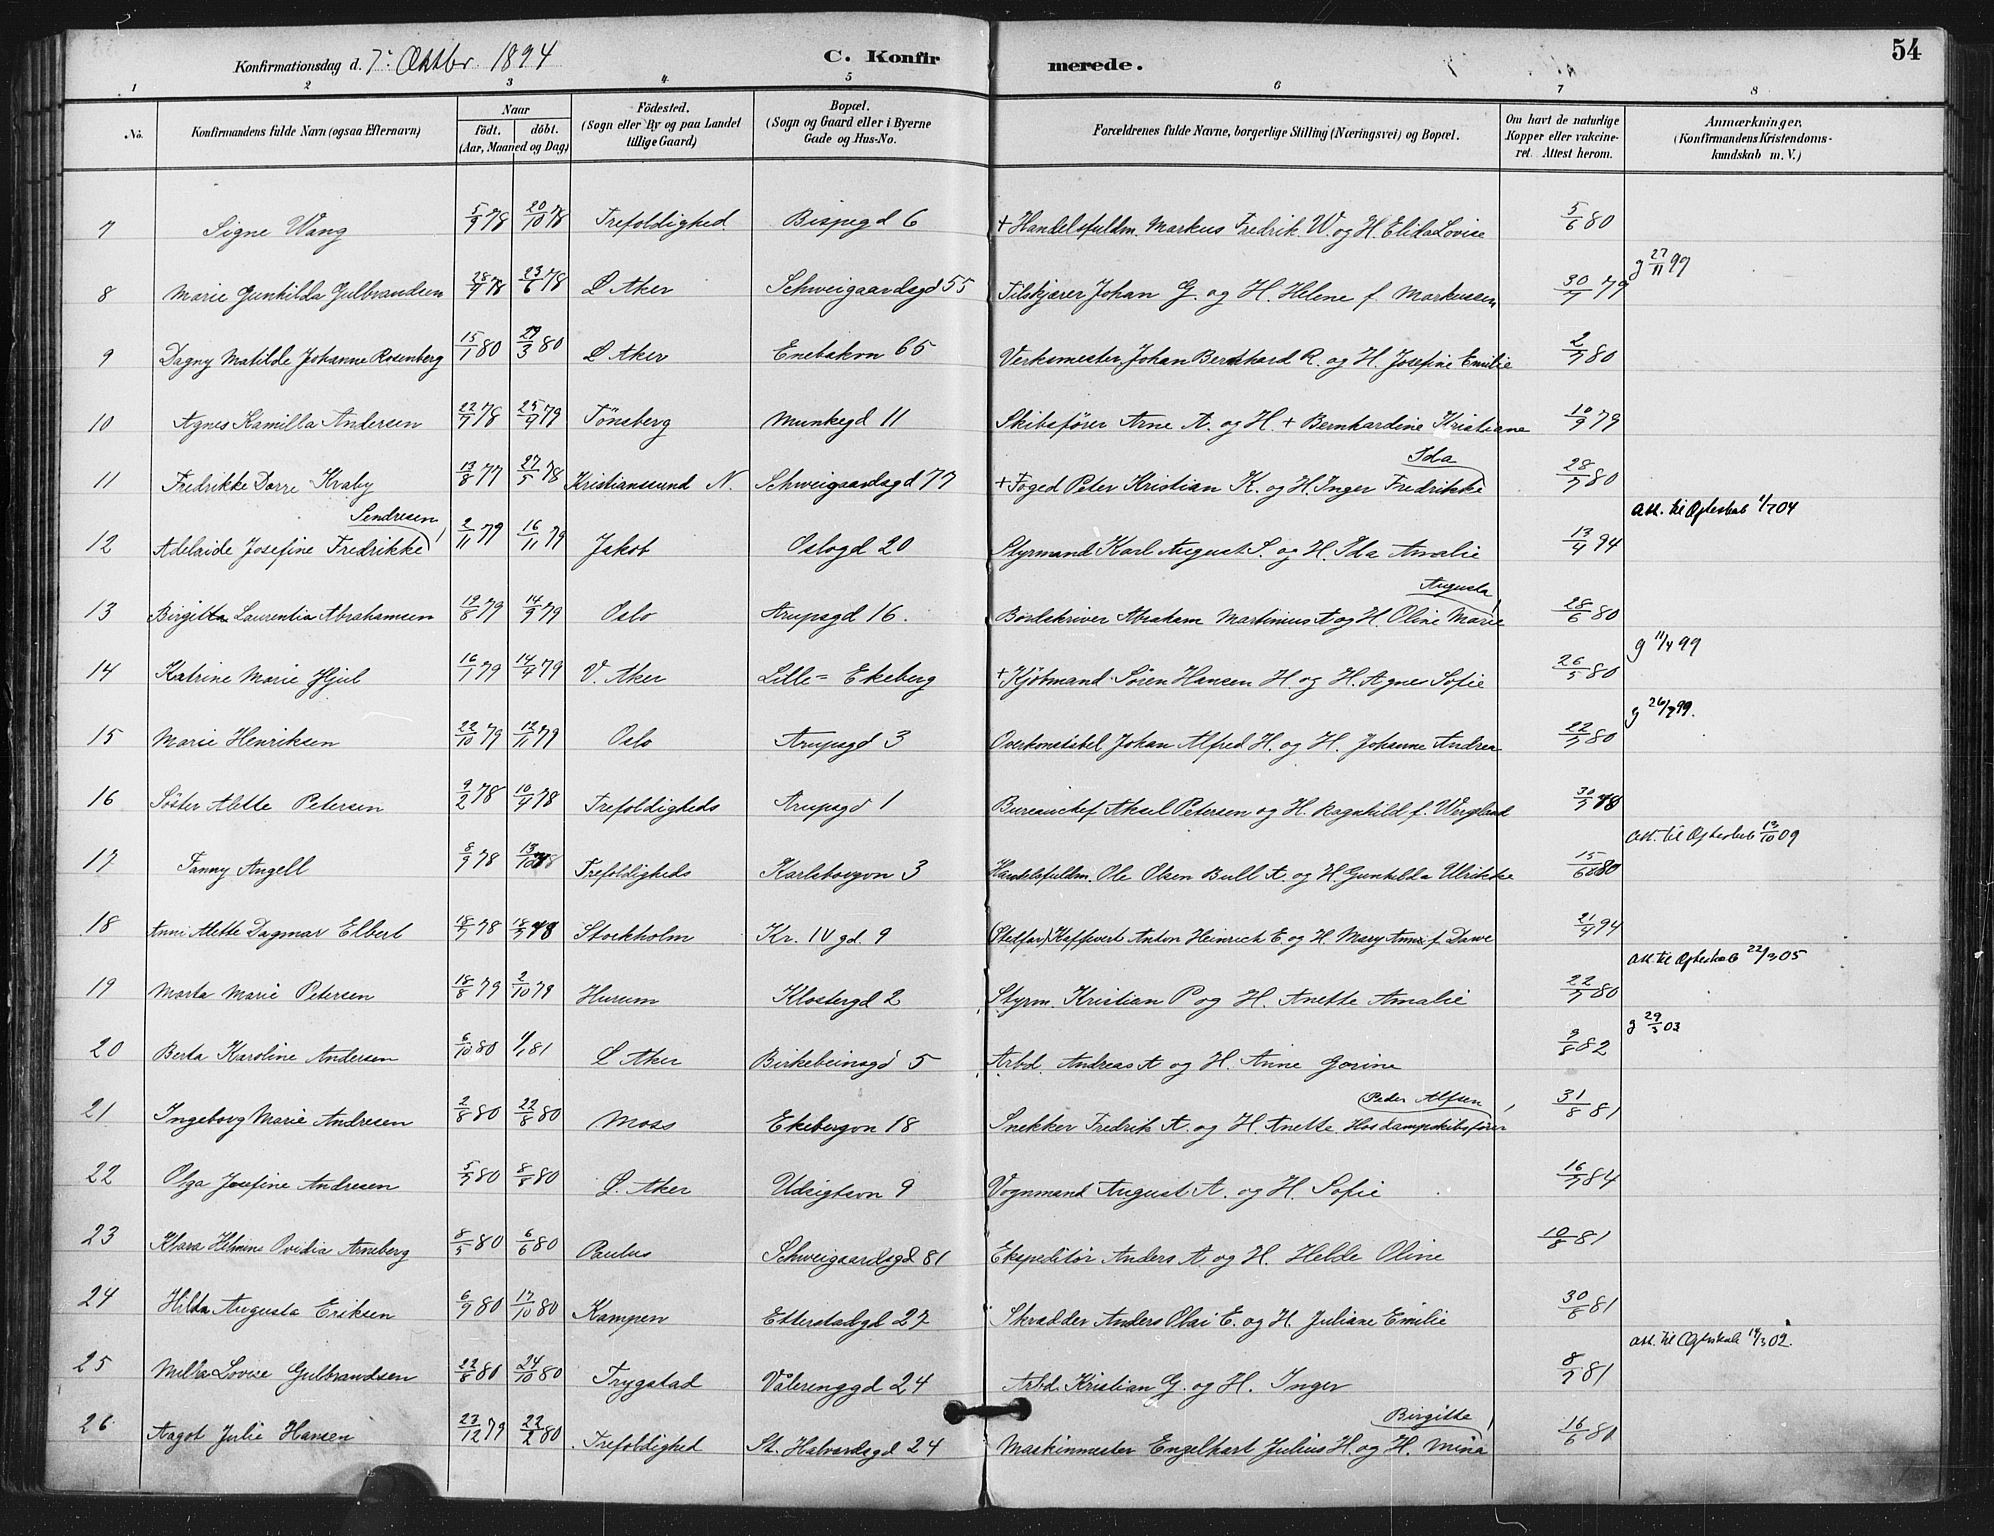 Konfirmationsdag d. 7. Oktbr. 1894 C. Konfirmerede. 54
1 2 3 4 5 6 7 8
No. Konfirmandens fulde Navn (ogsaa Efternavn) Naar födt. döbt. (Aar, Maaned og Dag) Födested. (Sogn eller By og paa Landet tillige Gaard) Bopæl. (Sogn og Gaard eller i Byerne Gade og Hus-No. Forældrenes fulde Navne, borgerlige Stilling (Næringsvei) og Bopæl. Om havt de naturlige Kopper eller vakcineret. Attest herom. Anmærkninger, (Konfirmandens Kristendomskundskab m. V.)
7 Signe Wang 5/9 78 20/10 78 Trefoldighed Bispegd 6 + Handelsfuldm. Markus Fredrik W. og H. Elida Lovise 5/6 80
8 Marie Gunhilda Gulbrandsen 23/6 78 Ø Aker Schweigaardsgd 55 Filskjærer Johan G. og H. Helene f. Markussen 30/7 79 g 27/11 97
9 Dagny Matilde Johanne Rosenberg 15/1 80 29/3 80 Ø Aker Enebakvn 65 Verksmester Johan Bernhard R. og H. Josefine Emilie 2/7 80
10 Agnes Kamilla Andersen 25/4 79 Tönsberg Munkegd 11 Skibsfører Arne A. og H. + Bernhardine Kristiane 10/9 79
11 Fredrikke Dorre Kraby 13/8 77 27/5 78 Kristianssund N. Schweigaardsgd 77 + Foged Peter Kristian K. og H. Inger Fredrikke Ida 28/7 80
12 Adelaide Josefine Fredrikke Sendresen 2/11 79 16/11 79 Jakob Oslogd 20 Styrmand Karl August S. og H. Ida Amalie 13/4 94 att. til Ægteskab 1/7 04
13 Birgitta Laurentia Abrahamsen 19/8 79 14/9 79 Oslo Arupsgd 16. Bordskriver Abraham Martinius A og H. Oline Marie Augusta 28/6 80
14 Katrine Marie Hjul 16/1 79 14/4 79 V. Aker Lille= Ekeberg + Kjöbmand Sören Hansen H. og H. Agne Sofie 26/5 80 g 11/4 99
15 Marie Henriksen 22/10 79 12/11 79 Oslo Arupsgd 3 Overkonstabel Johan Alfred H. og H. Johanne Andrea 22/7 80 g 26/7 99.
16 Söster Alette Petersen 9/2 78 10/4 78 Trefoldigheds Arupsgd 1 Bureauchef Aksel Petersen og H. Ragnhild f. Wergeland 30/7 78
17 Fanny Angell 8/9 78 13/10 78 Trefoldigheds Karlsborgvn 3 Handelsfuldm. Ole Olsen Bull A. og H. Gunhilda Ulrikke 15/6 80 att. til Ægteskab 13/10 09
18 Anni Alette Dagmar Elbert 18/7 78 18/7 78 Stockholm Kr. IV gd. 9 (Stedfar) Kaffevert Anton Heinrich E. og H. Mary Anni f. Dawe 21/4 94
19 Marta Marie Petersen 18/8 79 2/10 79 Hurum Klostergd 2 Styrm. Kristian P og H. Anette Amalie 22/7 80 att. til Ægteskab 22/3 05
20 Berta Karoline Andersen 6/10 80 1/1 81 Ø Aker Birkebeinsgd 5 Arbd. Andreas A og H. Anne Gorine 9/8 82 g 29/3 03
21 Ingeborg Marie Andresen 2/8 80 22/8 80 Moss Ekebergvn 18 Snekker Fredrik A. og H. Anette. Hos dampskibsfører Peder Alfsen 31/8 81
22 Olga Josefine Andresen 5/7 80 8/8 80 Ø. Aker Udsigtsvn 9 Vognmand August A. og H. Sofie 16/7 84
23 Klara Helmine Ovidia Arneberg 8/5 80 6/6 80 Paulus Schweigaardsgd 81 Ekspeditör Anders A. og H. Helde Oline 10/8 81
24 Hilda Augusta Eriksen 6/9 80 17/10 80 Kampen Etterstadgd 27 Skrædder Anders Olai E. og H. Juliane Emilie 30/6 81
25 Milla Lovise Gulbrandsen 22/8 80 24/10 80 Trygstad Vålerenggd 24 Arbd. Kristian G. og H. Inger 8/7 81 att. til Ægteskab 14/3 02.
26 Aagot Julie Hansen 23/12 79 22/2 80 Trefoldighed St. Halvardsgd 24 Maskinmester Engelhart Julius H. og H. Mina Birgitte 16/6 81